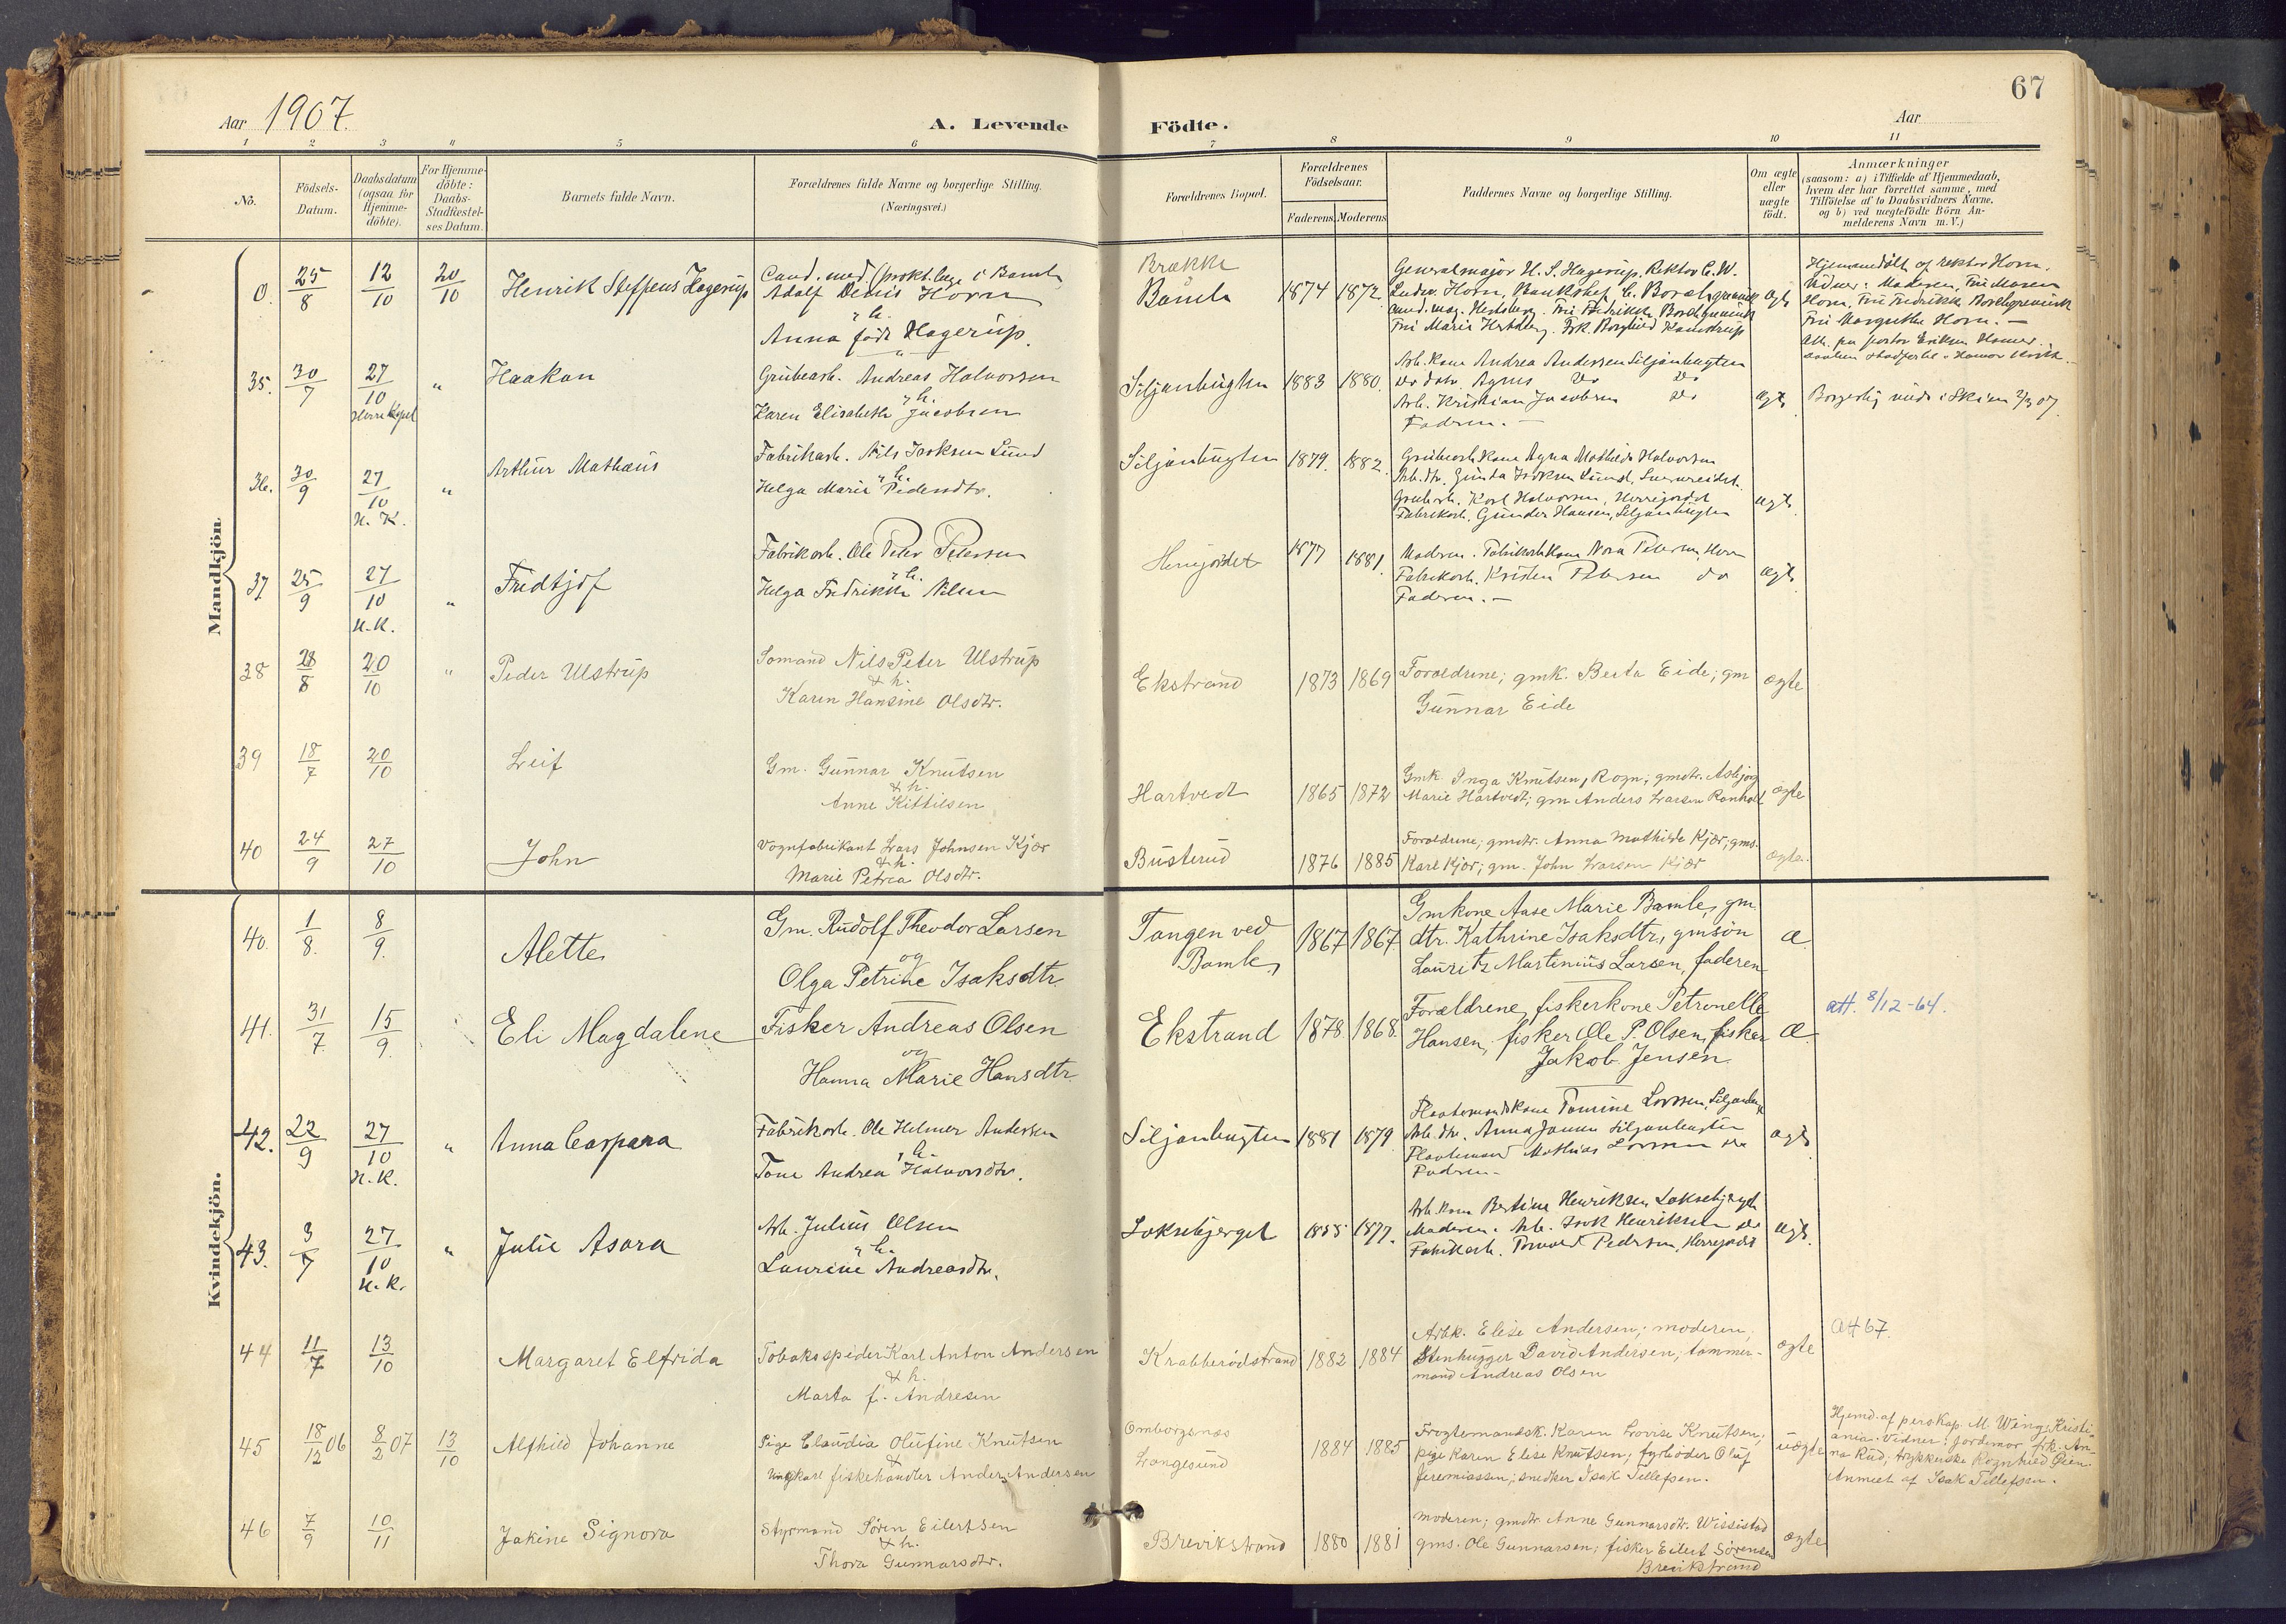 67
Aar 1907.
A. Levende Födte.
Aar
1 2 3 4 5 6 7 8 9 10 11
No.
Födsels-
Datum.
Daabsdatum
(ogsaa for
Hjemme-
döbte).
For Hjemme-
döbte:
Daabs-
Stadfæstel-
ses Datum.
Barnets fulde Navn.
Forældrenes fulde Navne og borgerlige Stilling.
(Næringsvei.)
Forældrenes Bopæl.
Forældrenes
Födselsaar.
Faderens. Moderens
Faddernes Navne og borgerlige Stilling.
Om ægte
eller
uægte
födt.
Anmærkninger
(saasom: a) i Tilfælde af Hjemmedaab,
hvem der har forrettet samme, med
Tilföielse af to Daabsvidners Navne,
og b) ved uægtefödte Börn An-
melderens Navn m.V.)
Mandkjön.
0. 25/8 12/10 20/10
Henrik Steffens Hagerup
Cand. med. (prakt. læge i Bamle)
Adolf Denis Horn
& h.
Anna født Hagerup.
Brække
Bamle
1874 1872
Generalmajor H. S. Hagerup, Rektor C. W.
Ludv. Horn, Bankchef C. Borchgrevink
cand. mag. Hertzberg. Fru Fredrikke Borchgrevink
Fru Maria Hertzberg Frk. Borghild Kamstrup
ægte
Hjemmedøbt af rektor Horn.
Vidner: Moderen, Fru Maren
Horn, Fru Fredrikke Borchgrevink
Fru Margrethe Horn. —
35. 30/7 27/10 "
Herre Kapel
Haakon
Grubearb. Andreas Halvorsen
& h.
Karen Elisabeth Jacobsen
Siljanbugten 1883 1880.
Arb. kone Andrea Andersen Siljanbugten
do datr. Agnes do do
Arb. Kristian Jacobsen do
Faderen. —
ægte
Borgerlig viede i Skien 2/3 07.
36. 30/9 27/10 "
H. K.
Arthur Mathæus
Fabrikarb. Nils Isaksen Lund
& h.
Helga Marie Pedersdtr.
Siljanbugten 1879. 1882.
Grubearb. kone Agna Mathilde Halvorsen
Arb. dtr. Gunda Isaksen Lund,
Grubearb. Karl Halvorsen, Herregjordet
Fabrikarb. Gunder Hansen, Siljanbugten
ægte
37. 25/9 27/10 "
H. K.
Fridtjof
Fabrikarb. Ole Peter Petersen
& h.
Helga Fredrikke Nilsen
Herregjordet 1877 1881.
Moderen. Fabrikarb. kone Nora Petersen, Herre
Fabrikarb. Kristen Petersen do
Faderen. —
ægte
38 28/8 20/10 "
Peder Ulstrup
Sømand Nils Peter Ulstrup
& h.
Karen Hansine Olsdtr.
Ekstrand 1873 1869
Forældrene; gmk. Berta Eide; gm
Gunnar Eide
ægte
39 18/7 20/10
Leif
Gm. Gunnar Knutsen
& h.
Anne Kittilsen
Hartvedt 1865 1872
Gmk. Inga Knutsen, Rogn; gmdtr. Asbjørg
Marie Hartvedt; gm Anders Larsen Rønholt
ægte
40 24/9 27/10
John
Vognfabrikant Lars Johnsen Kjær
& h.
Marie Petrea Olsdtr.
Busterud 1876 1885
Forældrene; gmdtr. Anna Mathilde Kjær; gms.
Karl Kjær; gm. John Larsen Kjær
ægte.
Kvindekjön.
40. 1/8. 8/9.
Alette
Gm. Rudolf Theodor Larsen
og
Olga Petrine Isaksdtr.
Tangen ved
Bamle
1867 1867
Gmkone Aase Marie Bamle, gm.
dtr. Kathrine Isaksdtr., gmsøn
Lauritz Martinius Larsen, faderen
æ.
41. 31/7. 15/9.
Eli Magdalene
Fisker Andreas Olsen
og
Hanna Marie Hansdtr.
Ekstrand 1878. 1868.
Forældrene, fiskerkone Petronelle
Hansen, fisker Ole P. Olsen, fisker
Jakob Jensen.
æ.
att. 8/12-64.
42. 22/9 27/10 "
H. K.
Anna Caspara
Fabrikarb. Ole Helmer Andersen
& h.
Tone Andrea Halvorsdtr.
Siljanbugten 1881 1879.
Arb. dtr. Anna Siljanbugten
Faderen. —
ægte
43. 3/7 27/10 "
H. K.
Julie Asora
Arb. Julius Olsen
& h.
Laurine Andreasdtr.
Laksebjerget 1855 1877.
Arb. kone Bertine Henriksen Laksebjerget
Moderen. Arb. Isak Henriksen do
Fabrikarb. Pedersen, Herregjordet
ægte
44 11/7 13/10
Margaret Elfrida
Tobaksspider Karl Anton Andersen
& h.
Marta f. Andresen
Krabberødstrand 1882 1884
Arbk. Elise Andersen; moderen,
Stenhugger David Andersen; tømmer-
mand Andreas Olsen
ægte
att 67.
45 18/12 06 8/2 07 13/10
Alfhild Johanne
Pige Claudia Olufine Knutsen
&
Ungkarl fiskehandler Anders Andersen
Omborgsnæs
Langesund
1884 1885
Fragtemandsk. Karen Lovise Knutsen;
pige Karen Elise Knutsen; fyrbøder Oluf
Jeremiassen; snedker Isak Tellefsen.
uægte
Hjemd. af perskap. M. Wing, Kristi-
ania. Vidner: Jordemor frk. An-
na Rud; trykkerske Ragnhild Øien.
Anmeldt af Isak Tellefsen.
46 7/9 10/11
Jakine Signora
Styrmand Søren Eilertsen
& h.
Thora Gunnarsdtr.
Brevikstrand 1880 1881
moderen; gmdtr. Anne Gunnarsdtr. Wissistad
gms. Ole Gunnarsen; fisker Eilert Sørensen
Brevikstrand
ægte